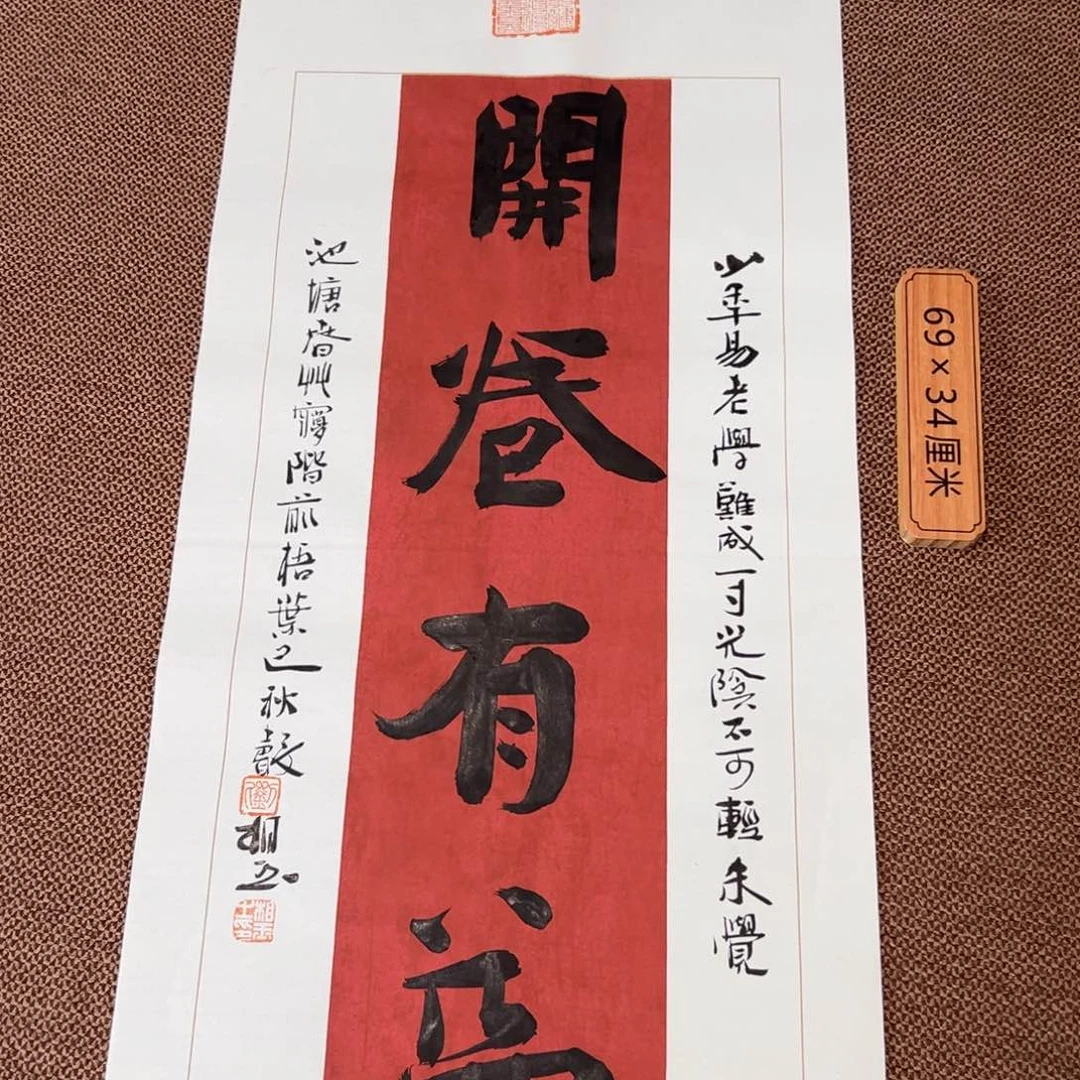 開卷有
少年易老學難成一寸光陰不可輕未覺
池塘春艸夢階前梧葉已秋聲
相玉
69×34厘米